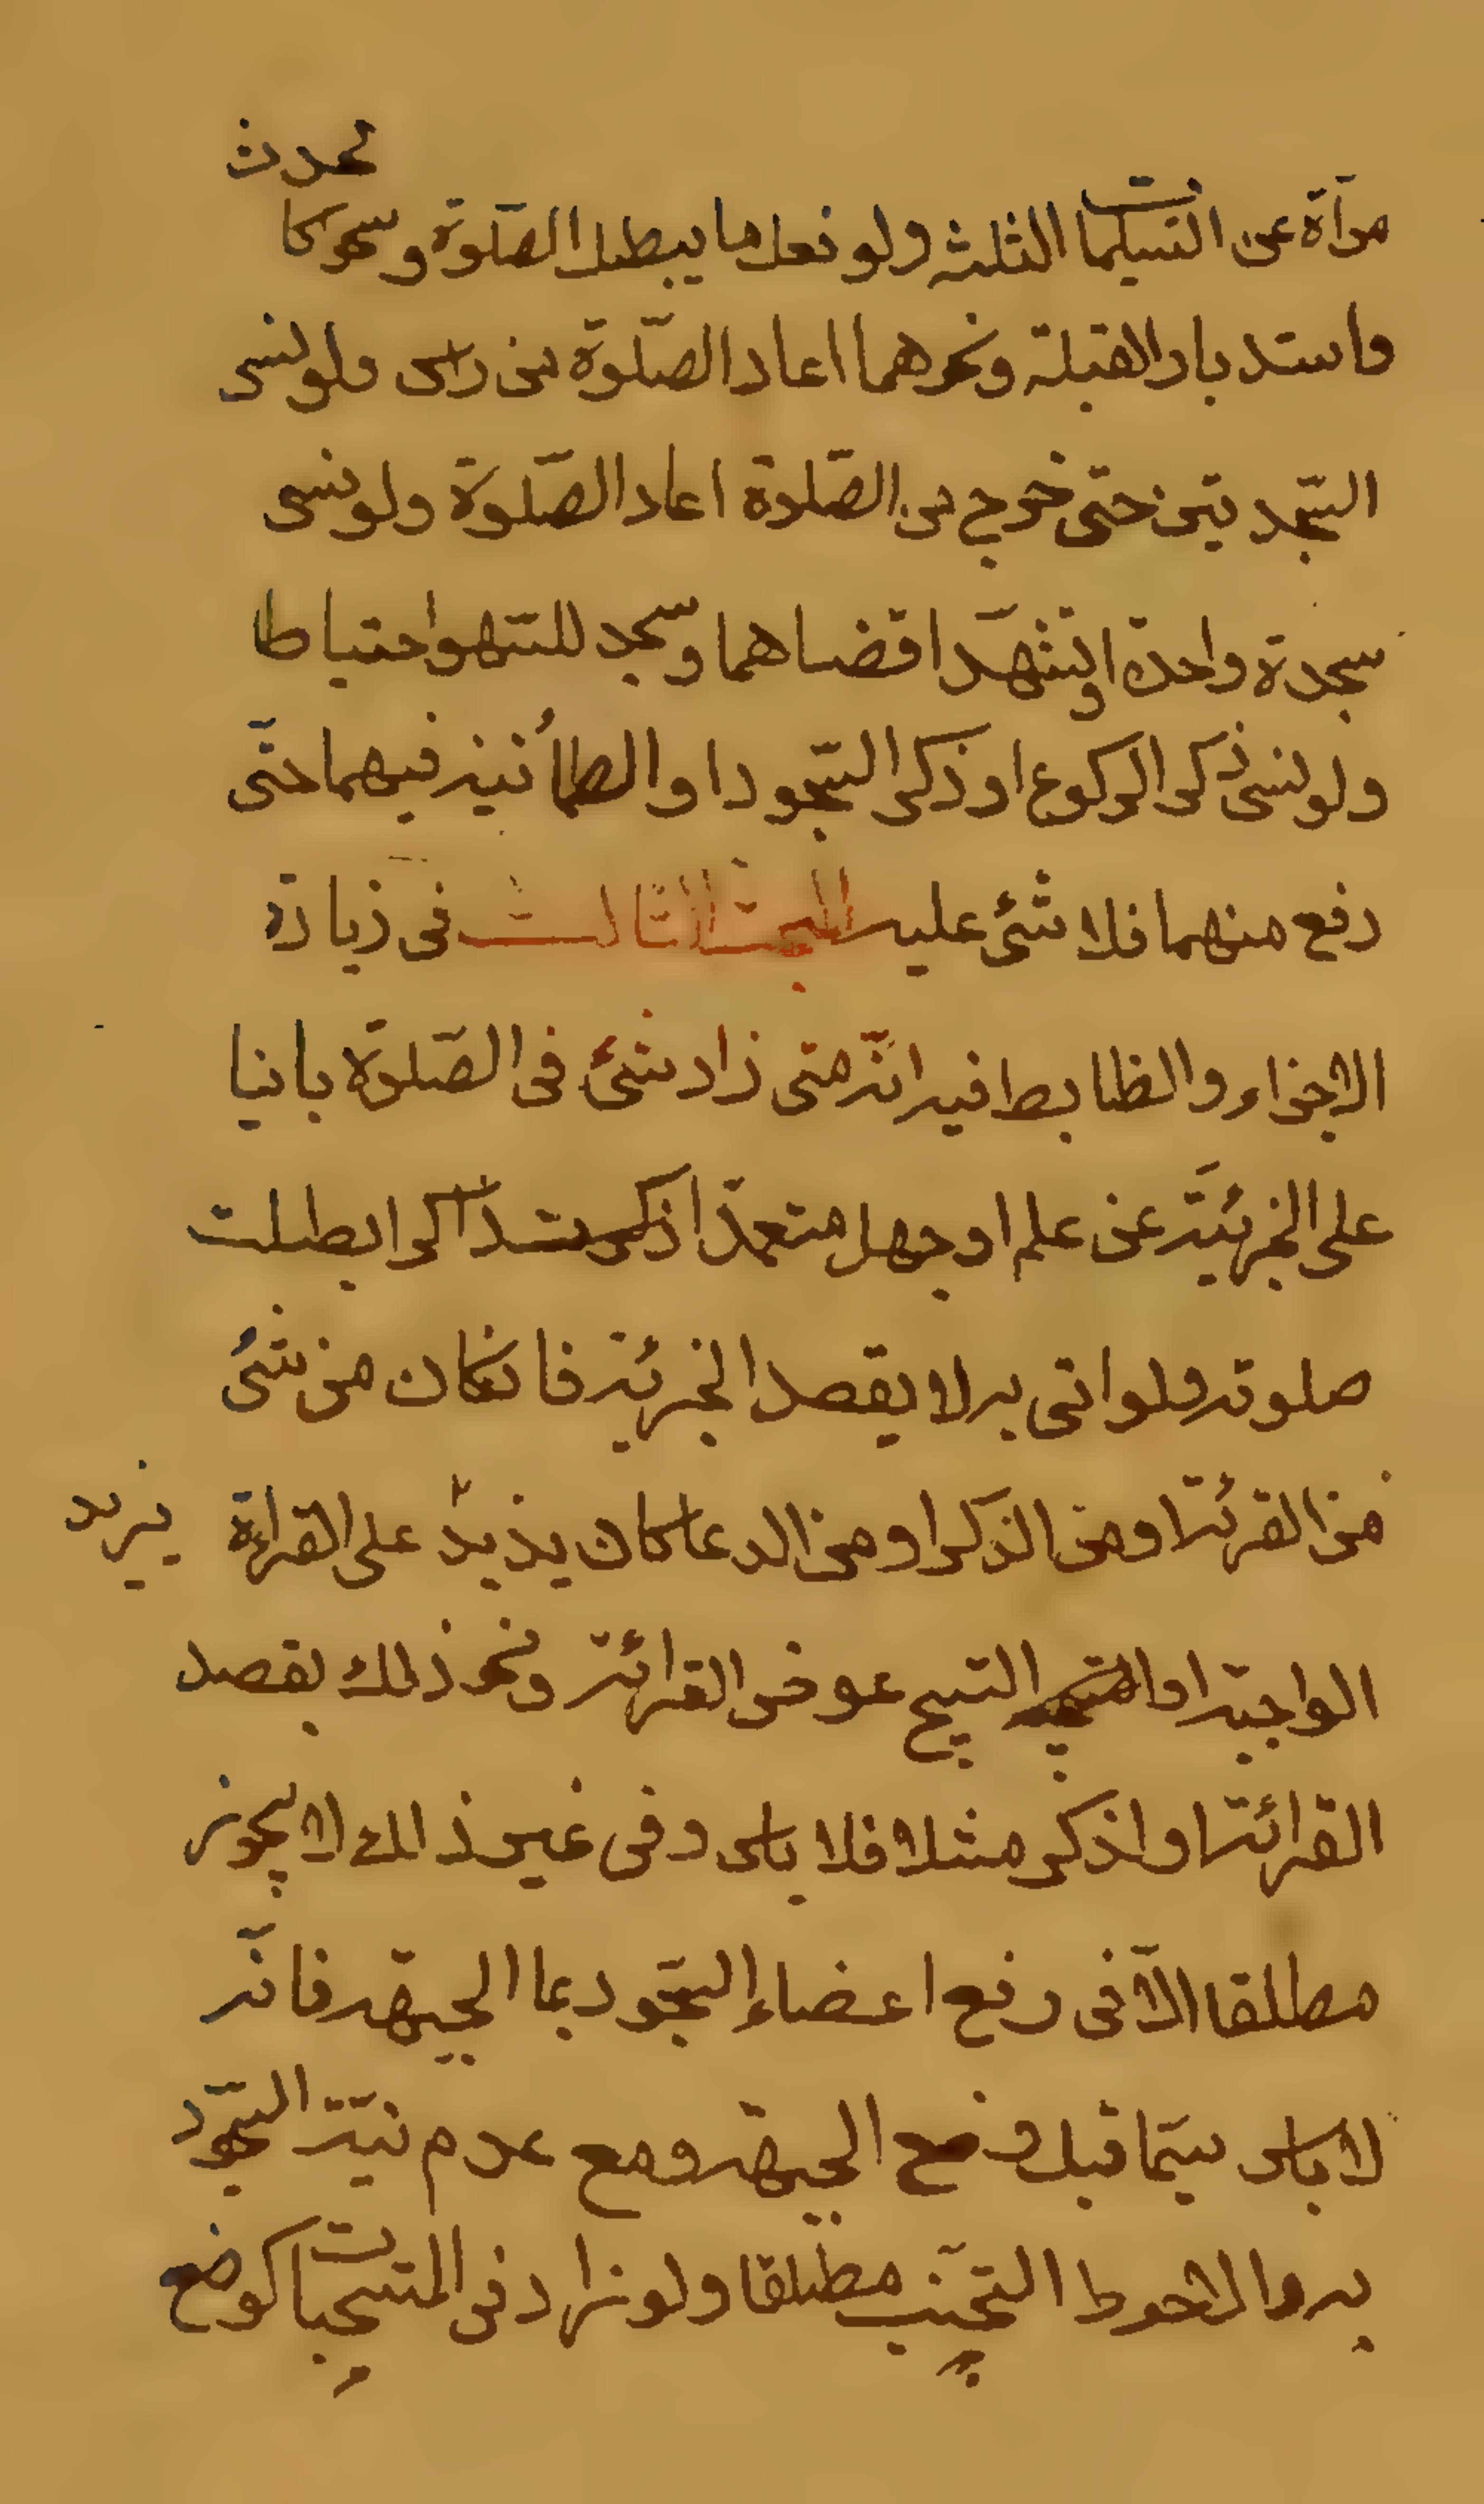 مرآة عن التسليمات الثلثة ولو فعل ما يبطل الصلوة وسهوا كالحدث
واستدبار القبلة ونحوهما اعاد الصّلوة من راس ولو نسى
السّجدتين حتى خرج من الصّلوة اعاد الصّلوة ولو نسى
سجدة واحدة او تشهّدا قضاهما وسجد للسّهو احتياطا
ولو نسى ذكر الركوع او ذكر السّجود او الطمأنينة فيهما حتّى
رفع منهما فلا شئ عليه المبحث الثالث فى زيادة
الاجزاء والظابط فيه انّه متى زاد شئ فى الصّلوة بانيا
على الجزئيّة عن علم او جهل متعمدّا ذاكرا بطلت
صلوته ولو اتى به لا بقصد الجزئية فانكان من شئ
من القرئة او من الذكر او من الدعا كان يزيد على القراءة
يزيد
الواجبة او التسبيح عوض القرائة ونحو ذلك بقصد
القرائة او اذكر مثلا فلا باس وفى غير ذالك لا يجوز
مطلقا الاّ فى رفع اعضاء السّجود عدا الجبهة فانّه
لا باس سيّما قبل وضع الجبهة ومع عدم نيّة السّجود
به والاحوط التّجنّب مطلقا ولو زاد فى المستحبات كوضع